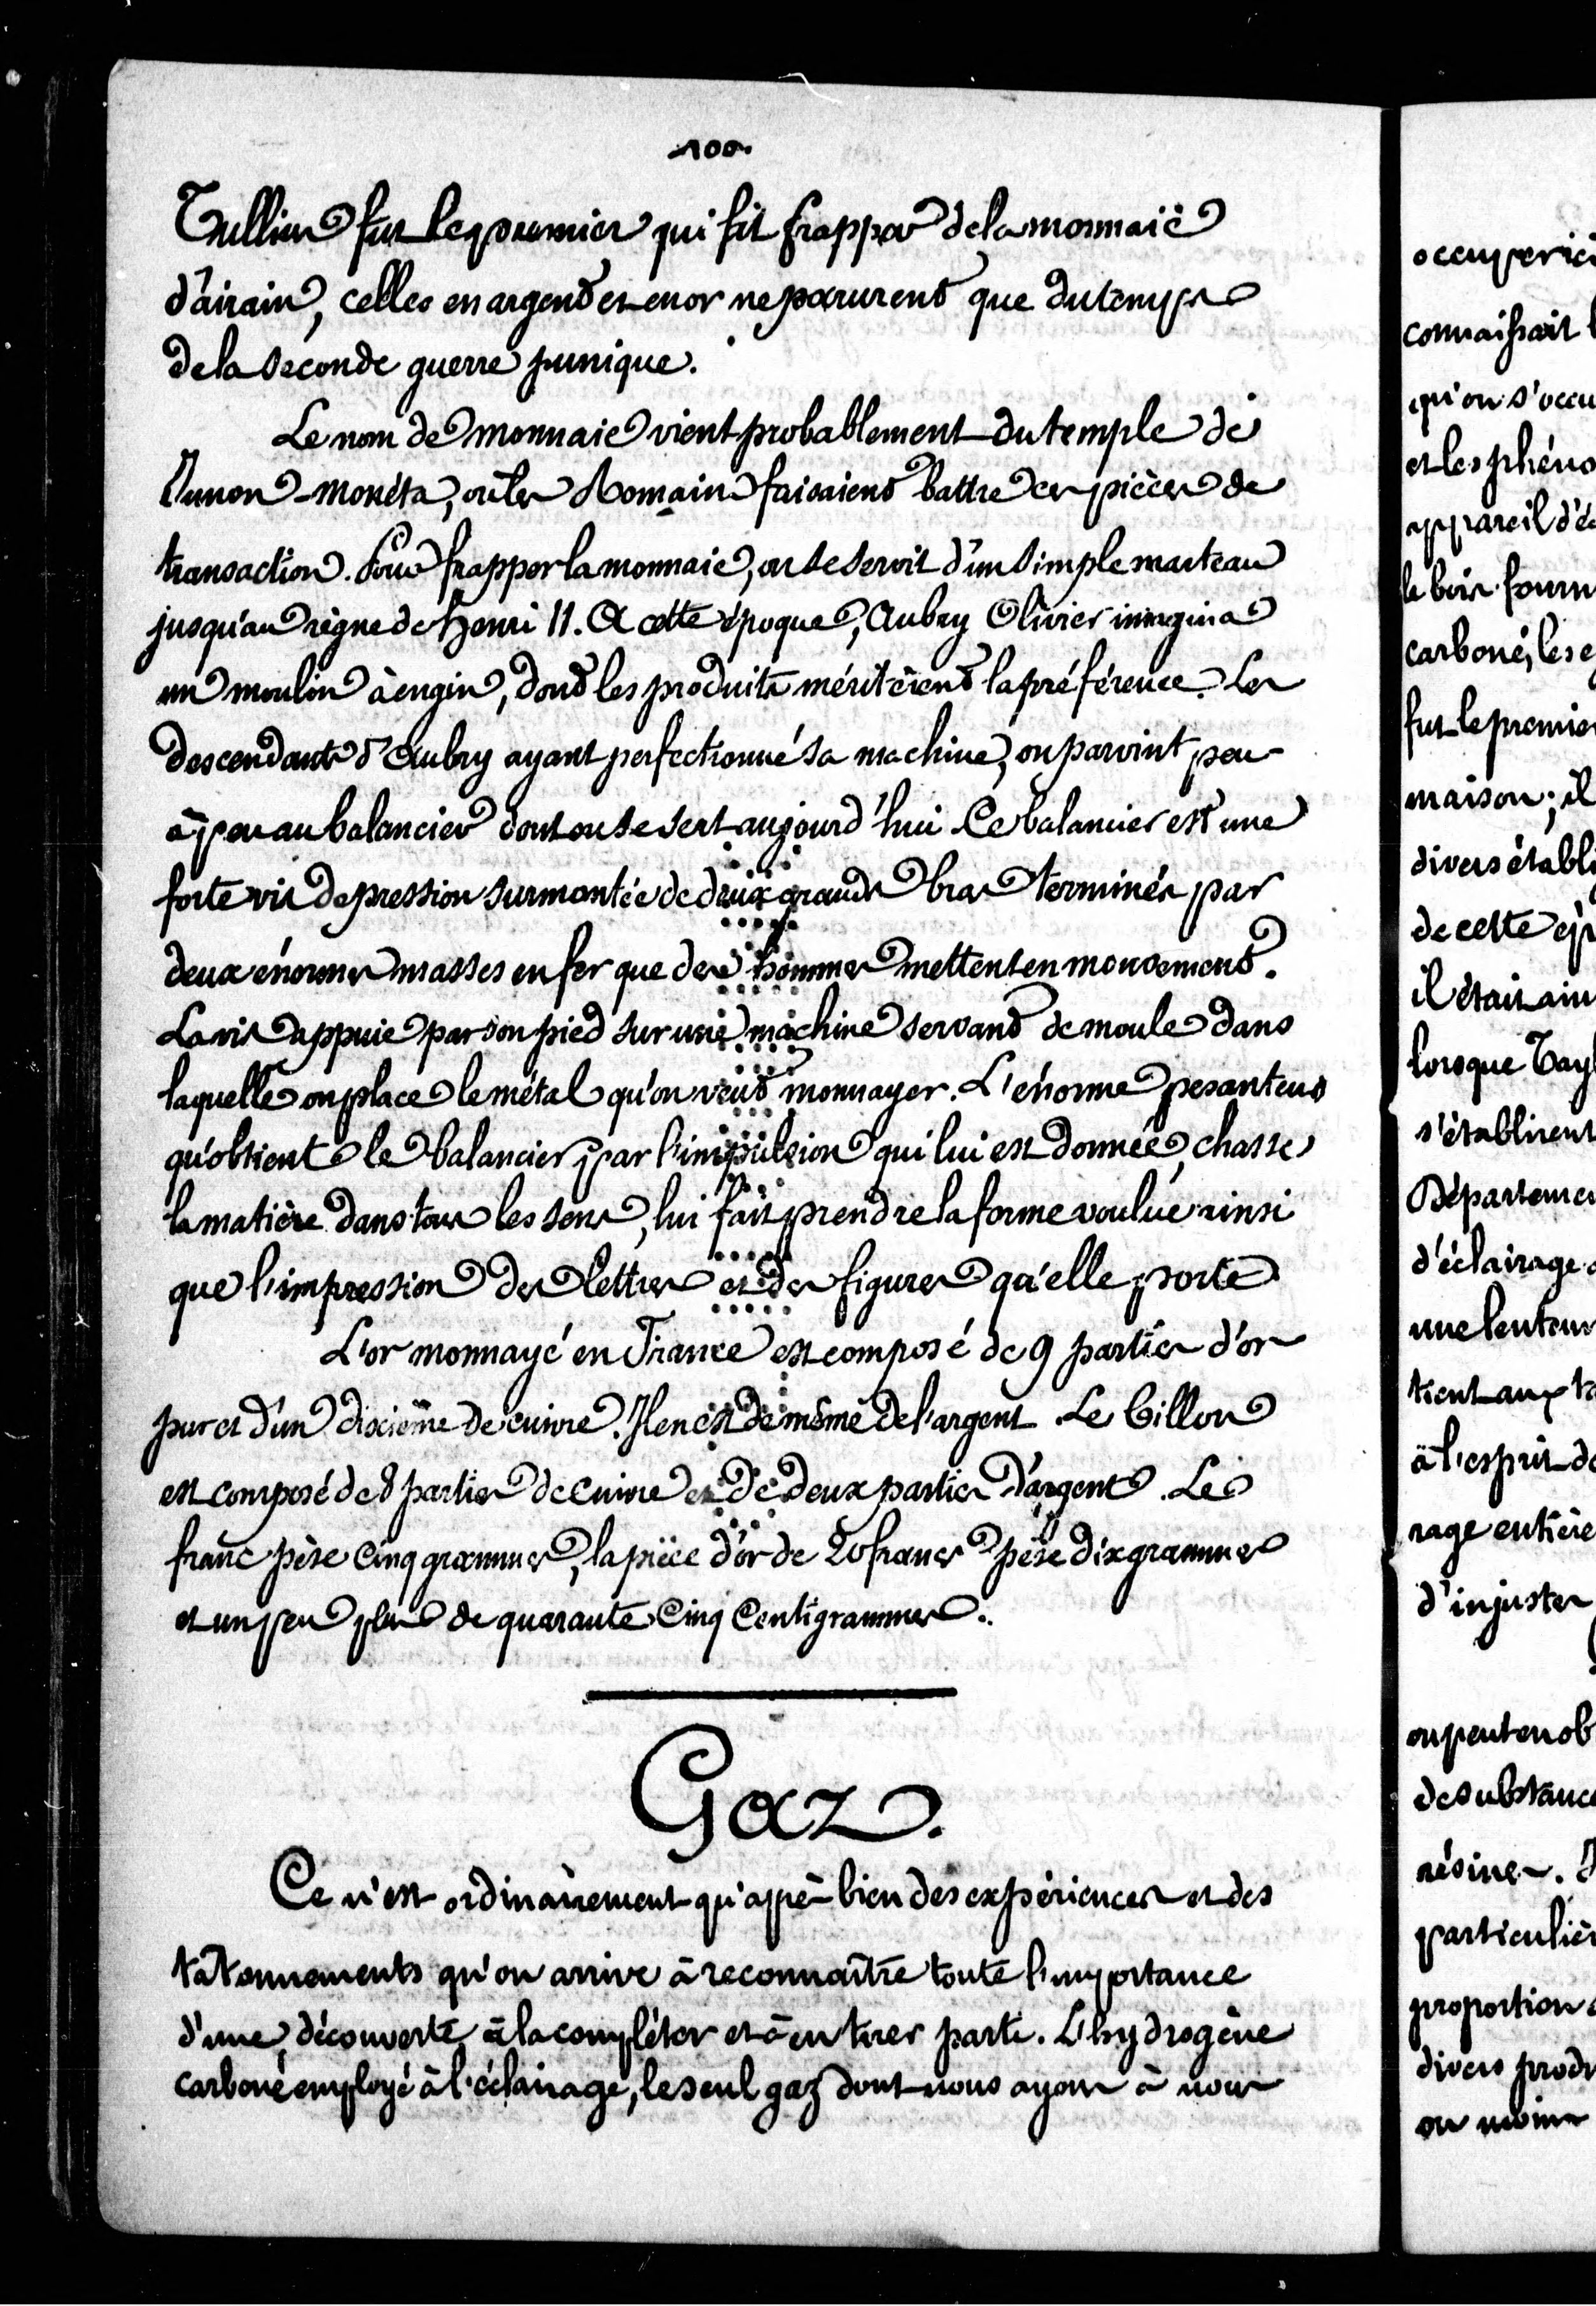 100.
Tullius fut le premier qui fit frapper de la monnaie
d'airain, celles en argent et en or ne parurent que du temps
de la seconde guerre punique.
Le nom de monnaie vient probablement du temple de
Junon-Monéta, où les Romains faisaient battre ces pièces de
transaction. Pour frapper la monnaie, on se servit d'un simple marteau
jusqu'au règne de Henri II. A cette époque, Aubry Olivier imagina
un moulin à engin, dont les produits méritèrent la préférence. Les
descendants d'Aubry ayant perfectionné sa machine, on parvint peu
à peu au balancier dont on se sert aujourd'hui. Ce balancier est une
forte vis de pression surmontée de deux grands bras terminés par
deux énormes masses en fer que des hommes mettent en mouvement.
La vis appuie par son pied sur une machine servant de moule dans
laquelle on place le métal qu'on veut monnayer. L'énorme pesanteur
qu'obtient le balancier par l'impulsion qui lui est donnée, chasse
la matière dans tous les sens, lui fait prendre la forme voulue ainsi
que l'impression des lettres et des figures qu'elle porte
L'or monnayé en France est composé de 9 parties d'or
pur et d'un dixième de cuivre. Il en est de même de l'argent. Le billon
est composé de 8 parties de cuivre et de deux parties d'argent. Le
franc pèse cinq grammes, la pièce d'or de 20 francs pèse dix grammes
et un peu plus de quarante cinq centigrammes.
Gaz.
Ce n'est ordinairement qu'après bien des expériences et des
tatonnements qu'on arrive à reconnaître toute l'importance
d'une découverte, à la compléter et à en tirer parti. L'hydrogène
carboné employé à l'éclairage, le seul gaz dont nous ayons à nous
connaissait
qu'on s'occu
et les phéno
appareil d'é
le bois fourn
carboné, les e
fut le premier
maison; il
divers établi
de cette ép
il était ain
lorsque Tay
s'établirent
Départemen
d'éclairage
une lenteur
tient aux
à l'esprit de
rage entière
d'injustes
on peut en ob
de substance
résines.
particuliè
proportion
divers produ
ou moins